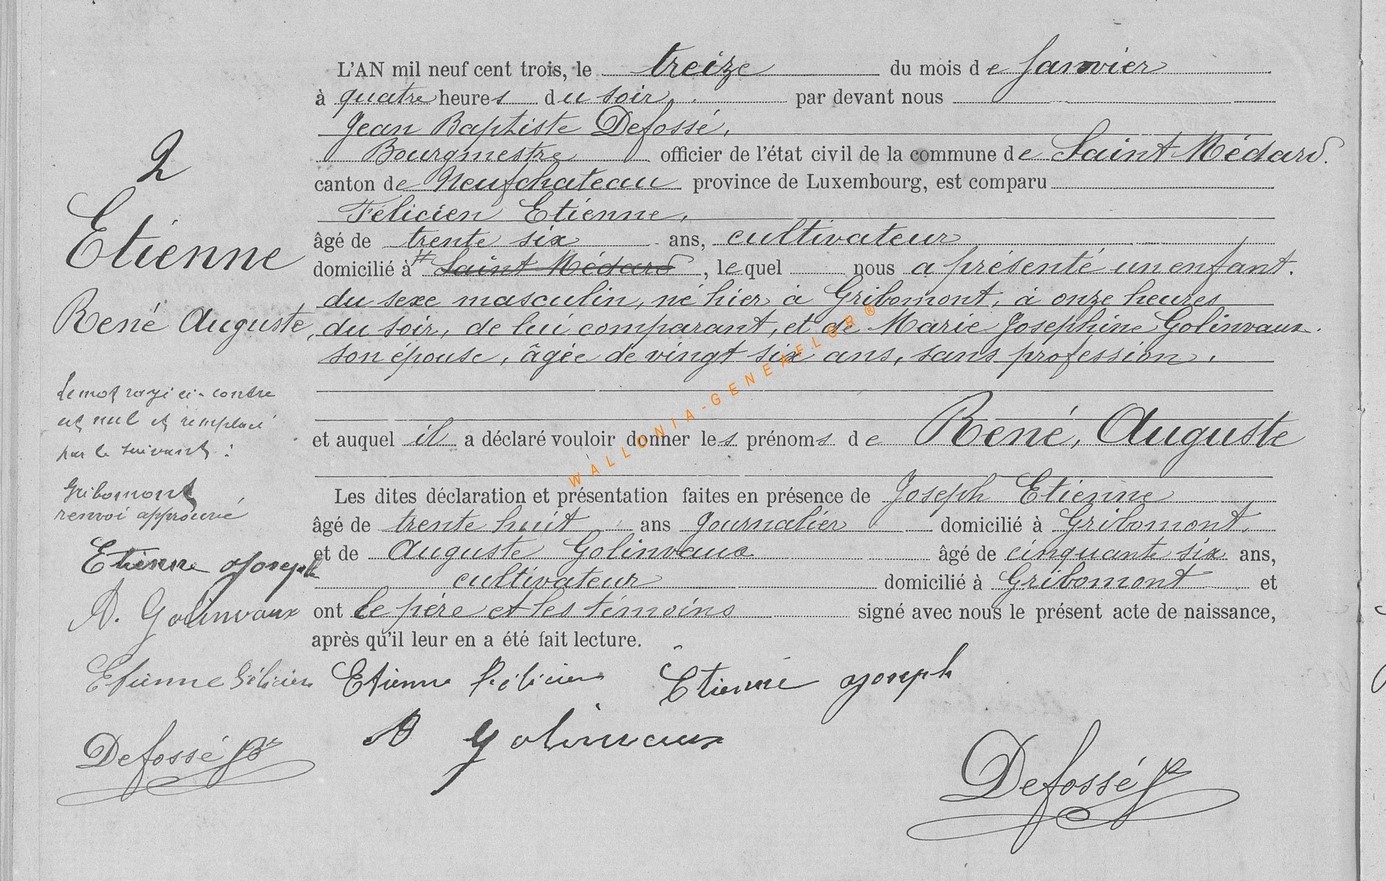 L'AN mil neuf cent trois, le treize du mois de Janvier
à quatre heures du soir, par devant nous
Jean Baptiste Defossé,
Bourgmestre officier de l'état civil de la commune de Saint Médard.
canton de Neufchateau province de Luxembourg, est comparu
Félicien Etienne,
âgé de trente six ans, cultivateur
domicilié à # Saint Médard, lequel nous a présenté un enfant.
du sexe masculin, né hier, à Gribomont, à onze heures
du soir, de lui comparant, et de Marie Josephine Golinvaux.
son épouse, âgée de vingt six ans, sans profession,
et auquel il a déclaré vouloir donner les prénoms de René, Auguste
Les dites déclaration et présentation faites en présence de Joseph Etienne
âgé de trente huit ans journalier domicilié à Gribomont.
et de Auguste Golinvaux âgé de cinquante six ans,
cultivateur domicilié à Gribomont et
ont le père et les témoins signé avec nous le présent acte de naissance,
après qu'il leur en a été fait lecture.
Etienne Félicien Etienne Joseph
A Golinvaux
Defossé
2
Etienne
René Auguste
Le mot rayé ci-contre
est nul et remplacé
par le suivant :
Gribomont
renvoi approuvé
Etienne Joseph
A. Golinvaux
Etienne Félicien
Defossé
WALLONIA-GENEAFLOR®